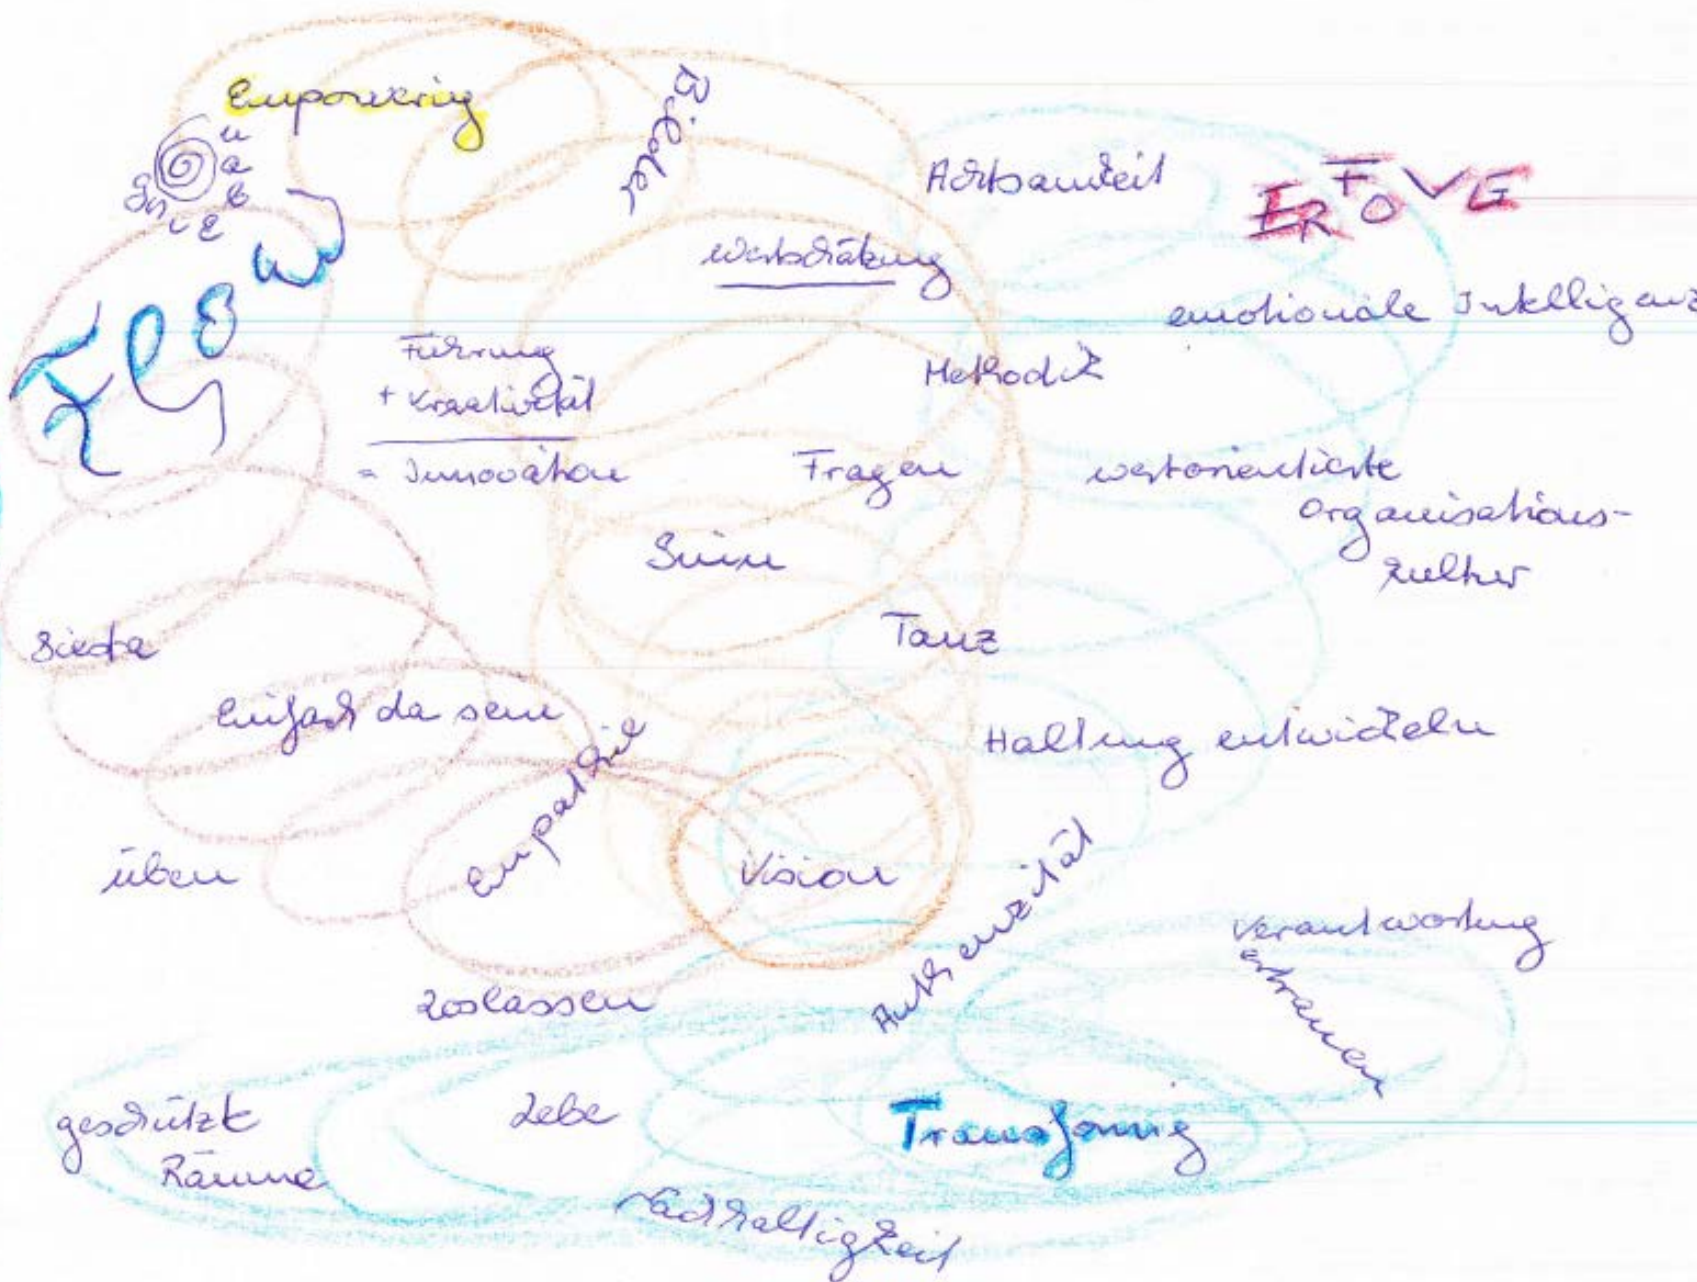 Empowering
Achtsamkeit
Wertschätzung
emotionale Intelligenz
Flow
Führung
+ Kreativität
= Innovation
Methodik
Fragen
wertorientierte
Organisations-
kultur
Sinn
Siesta
Tanz
Einfach da sein
Haltung entwickeln
Empathie
üben
Vision
Authenzität
Verantwortung
Loslassen
geschützte
Räume
Liebe
Nachhaltigkeit